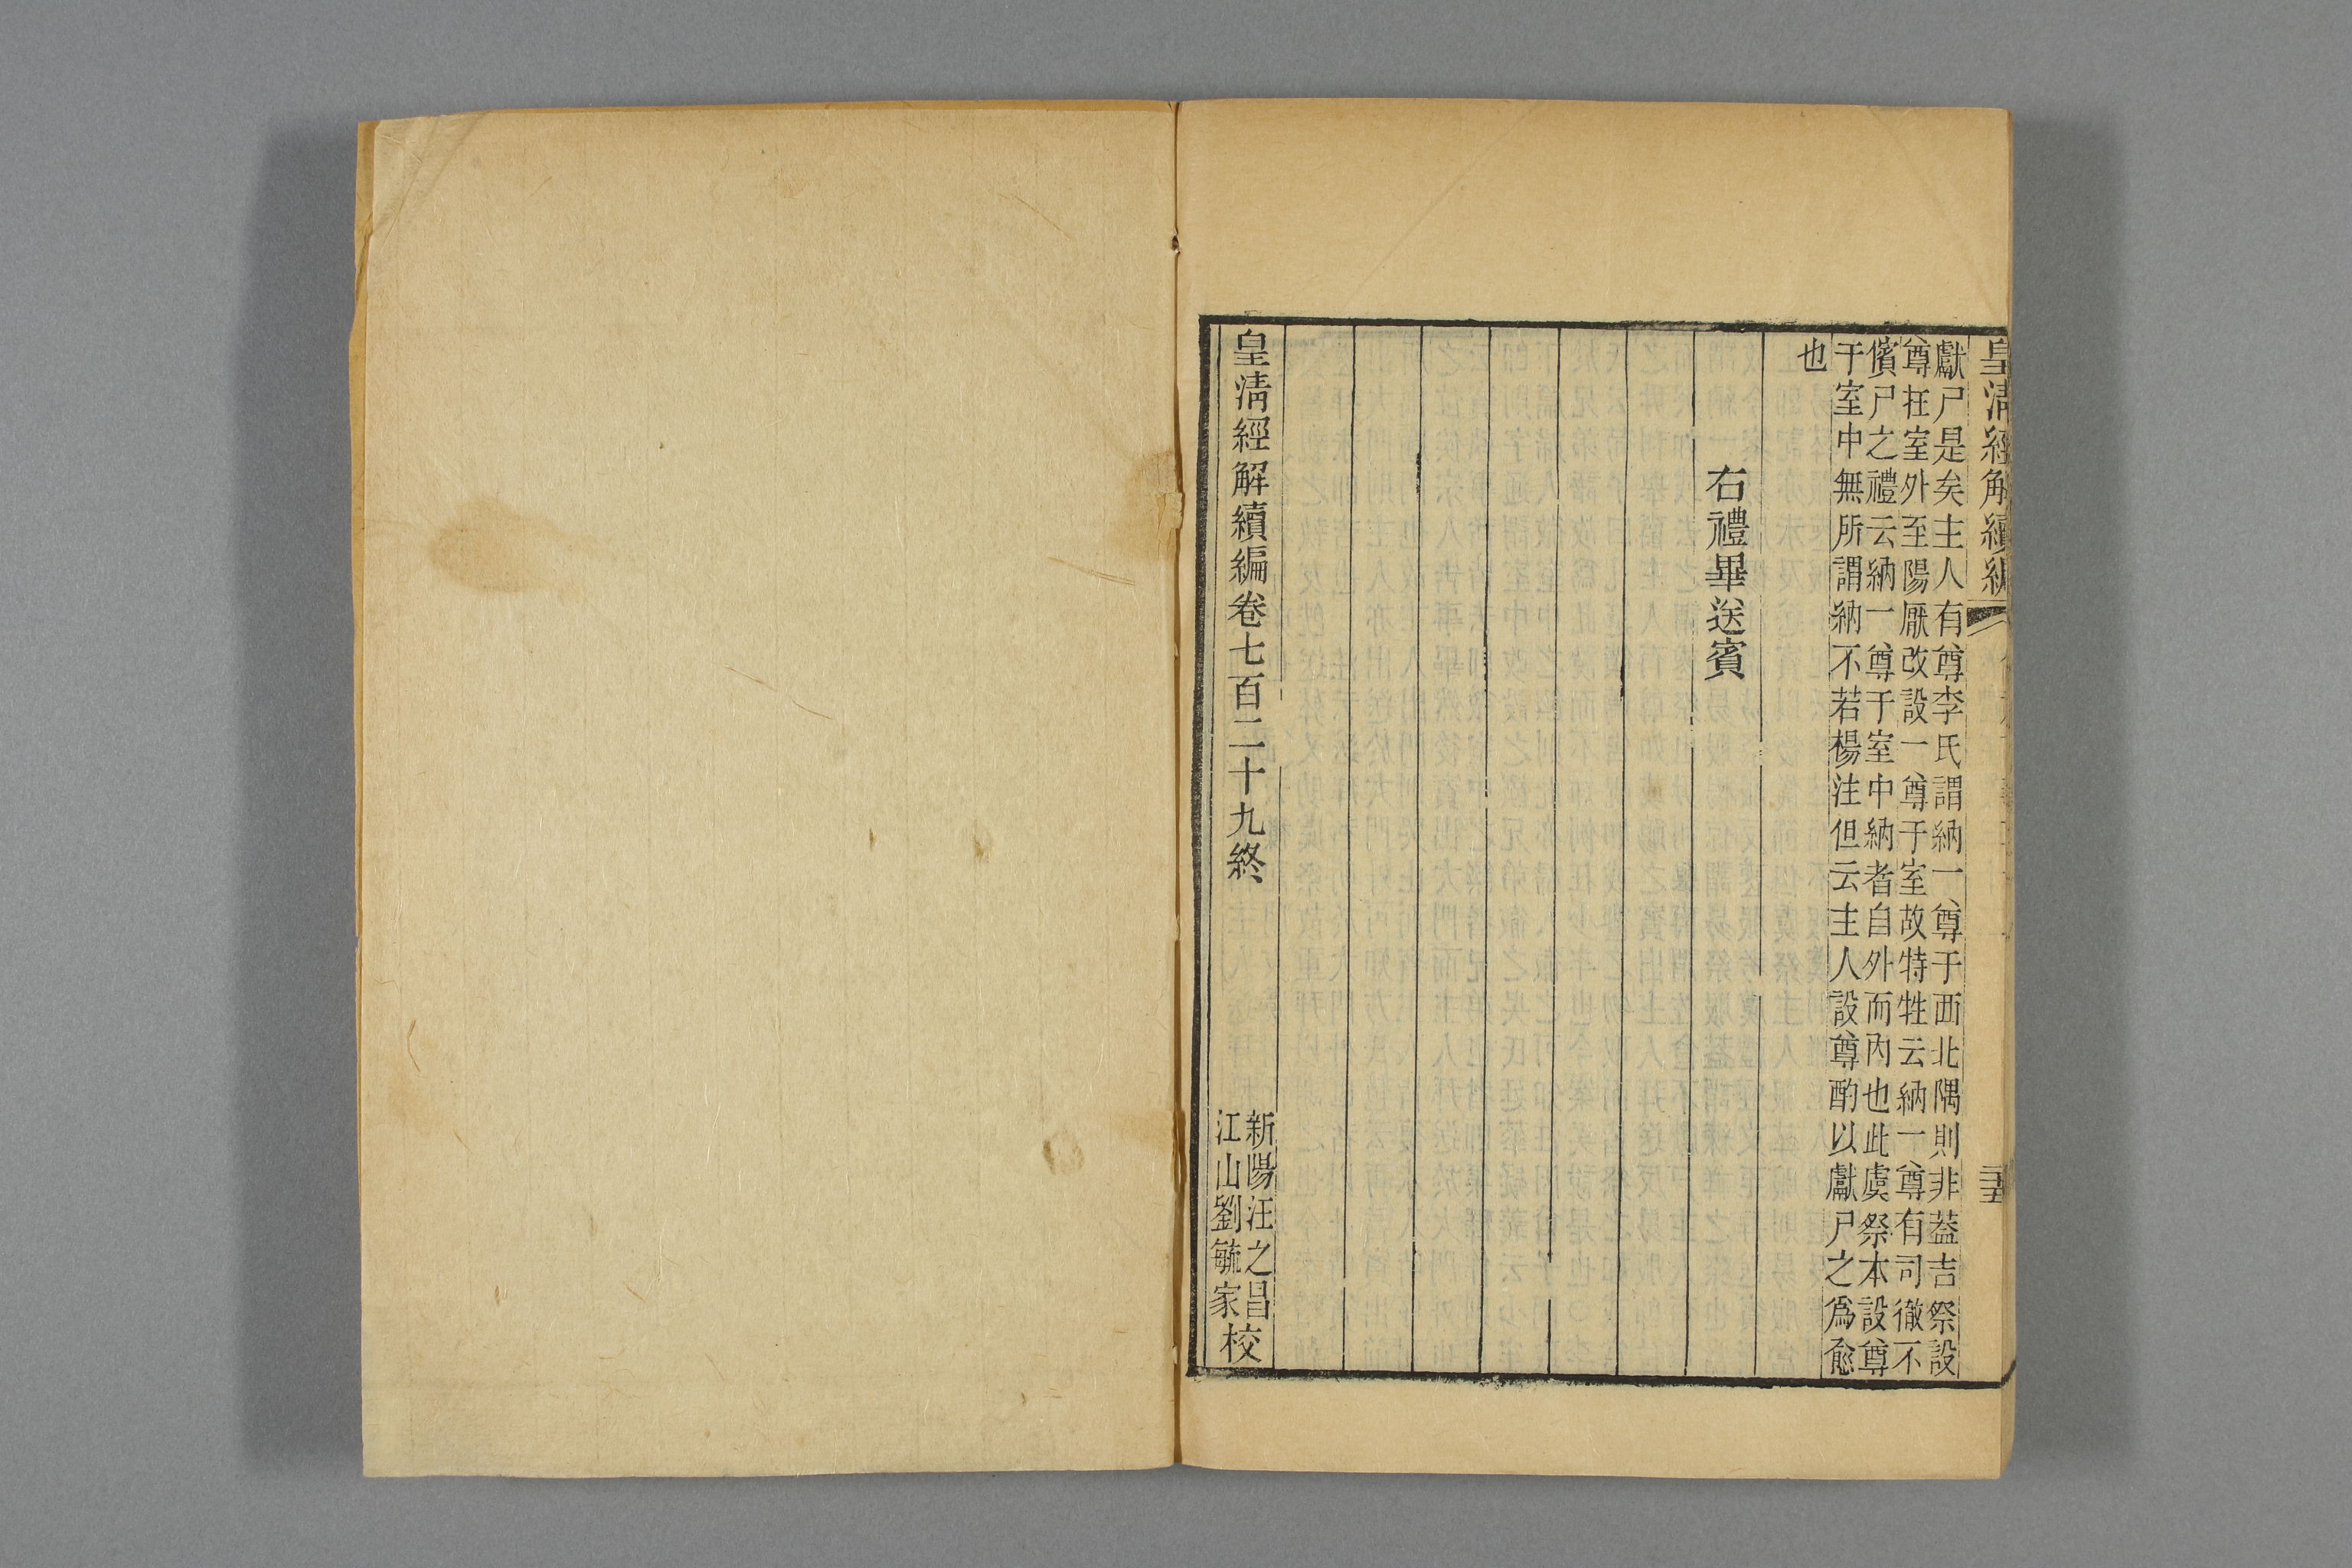 皇淸經解續編
獻尸是矣主人有尊李氏謂納一尊于西北隅則非葢吉祭設
尊在室外至陽厭改設一尊于室故特牲云納一尊有司徹不
儐尸之禮云納一尊于室中納者自外而內也此虞祭本設尊
于室中無所謂納不若楊注但云主人設尊酌以獻尸之爲愈
也
右禮畢送賓
皇淸經解續編卷七百二十九終
新陽汪之昌
江山劉毓家
校